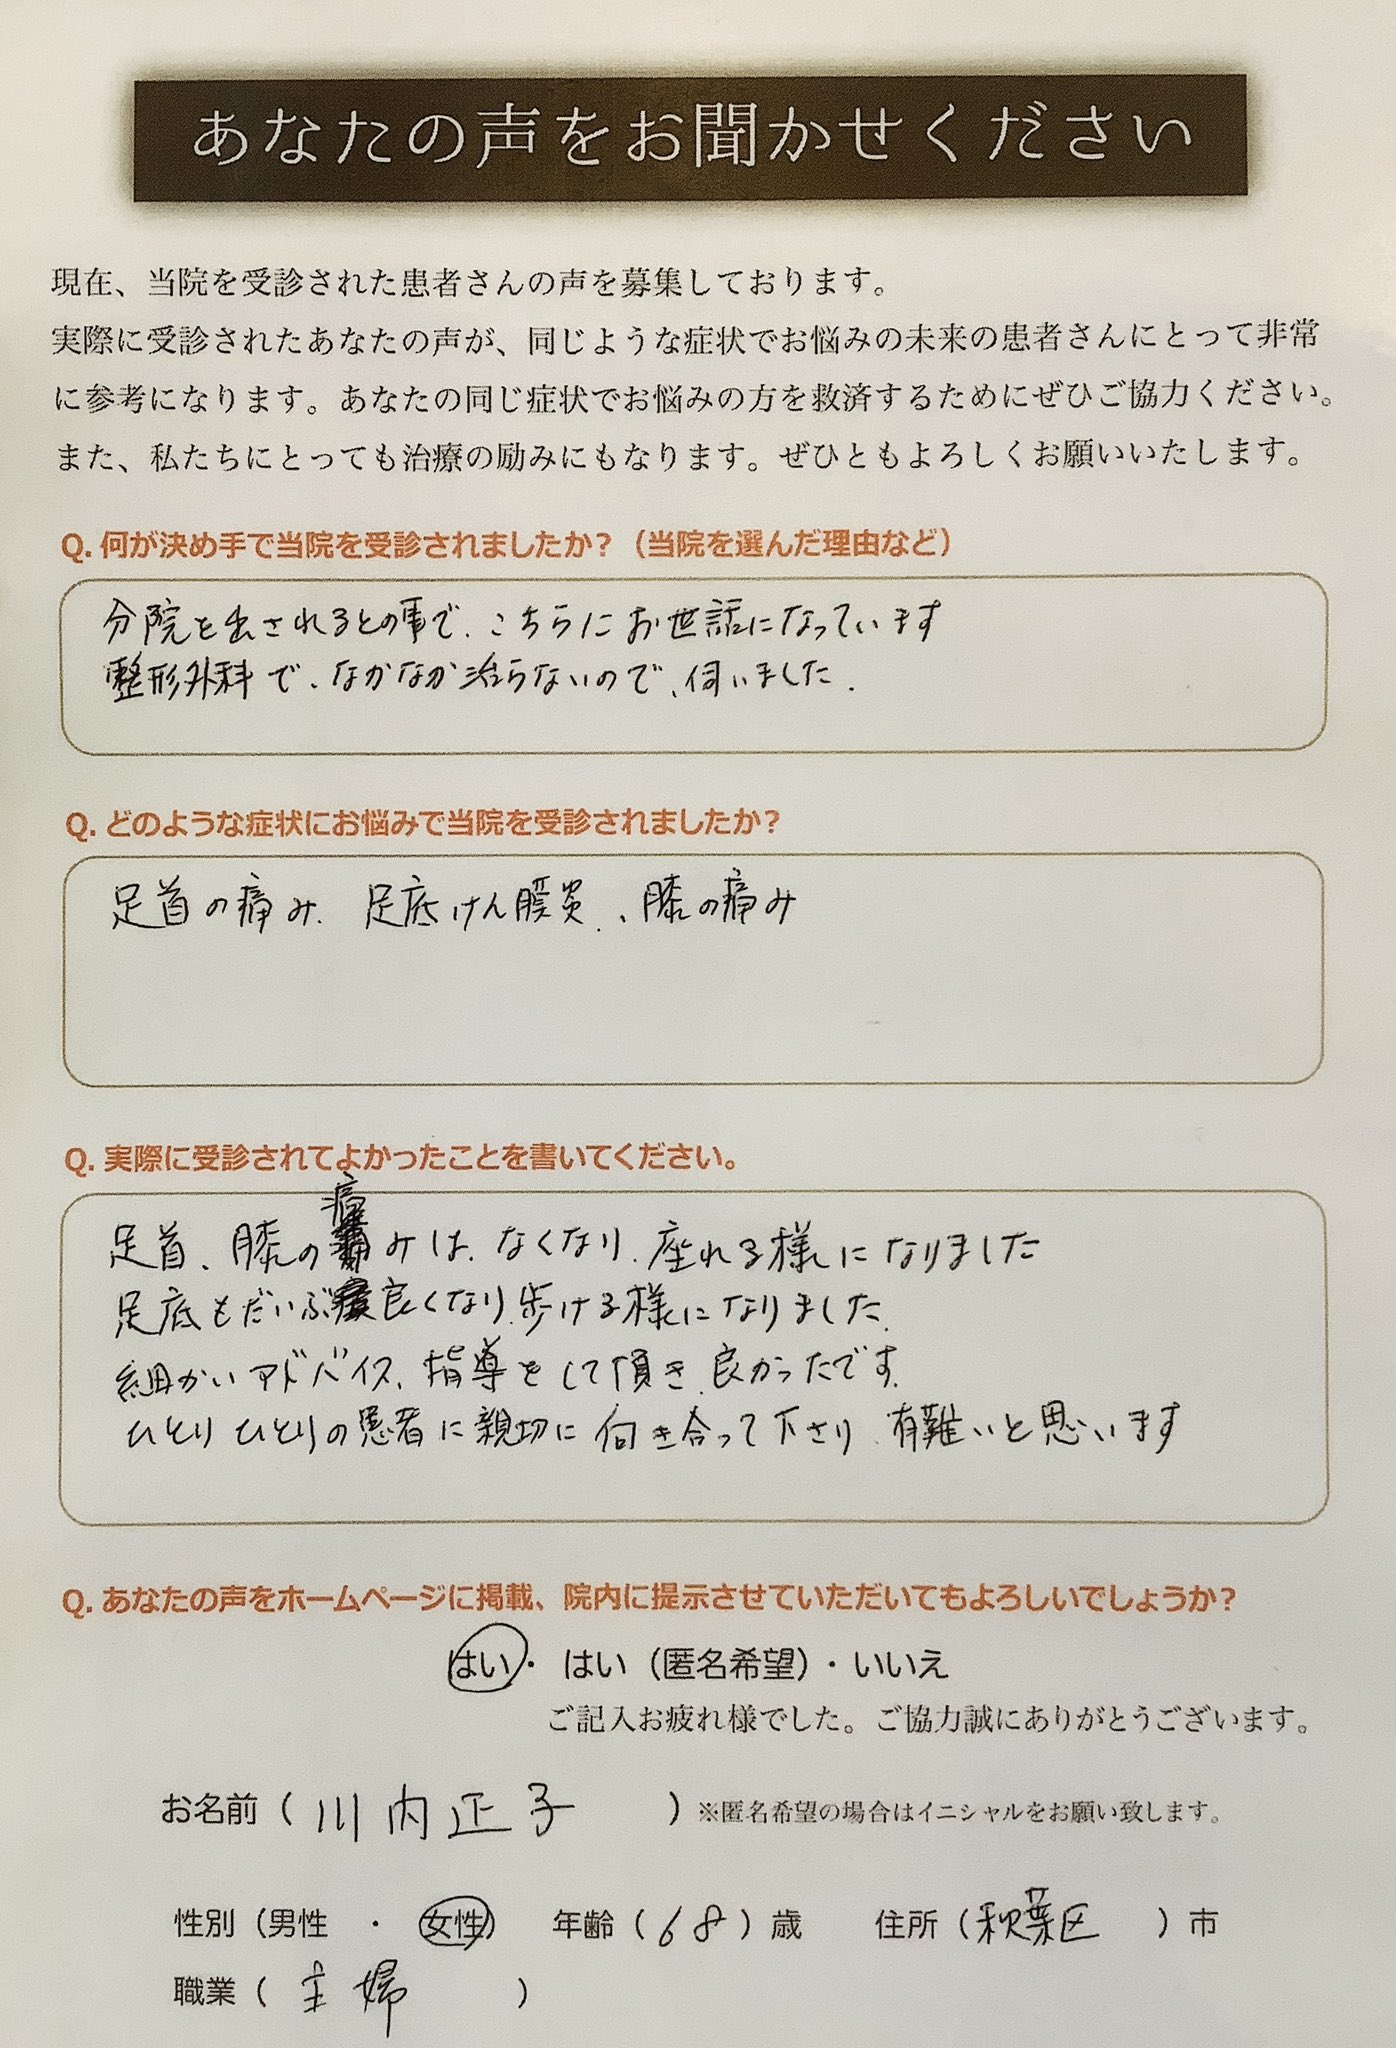 あなたの声をお聞かせください
現在、当院を受診された患者さんの声を募集しております。
実際に受診されたあなたの声が、同じような症状でお悩みの未来の患者さんにとって非常
に参考になります。あなたの同じ症状でお悩みの方を救済するためにぜひご協力ください。
また、私たちにとっても治療の励みにもなります。ぜひともよろしくお願いいたします。
Q. 何が決め手で当院を受診されましたか？（当院を選んだ理由など）
分院を出されるとの事で、こちらにお世話になっています
整形外科で、なかなか治らないので、伺いました.
Q. どのような症状にお悩みで当院を受診されましたか？
足首の痛み. 足底けん膜炎、膝の痛み
Q. 実際に受診されてよかったことを書いてください。
足首、膝の痛みは、なくなり、座れる様になりました
足底もだいぶ良くなり、歩ける様になりました.
細かいアドバイス、指導をして頂き、良かったです.
ひとりひとりの患者に親切に向き合って下さり、有難いと思います
Q. あなたの声をホームページに掲載、院内に提示させていただいてもよろしいでしょうか？
はい・ はい（匿名希望）・いいえ
ご記入お疲れ様でした。ご協力誠にありがとうございます。
お名前（川内正子）※匿名希望の場合はイニシャルをお願い致します。
性別（男性 ・ 女性） 年齢（68）歳 住所（秋葉区）市
職業（主婦）